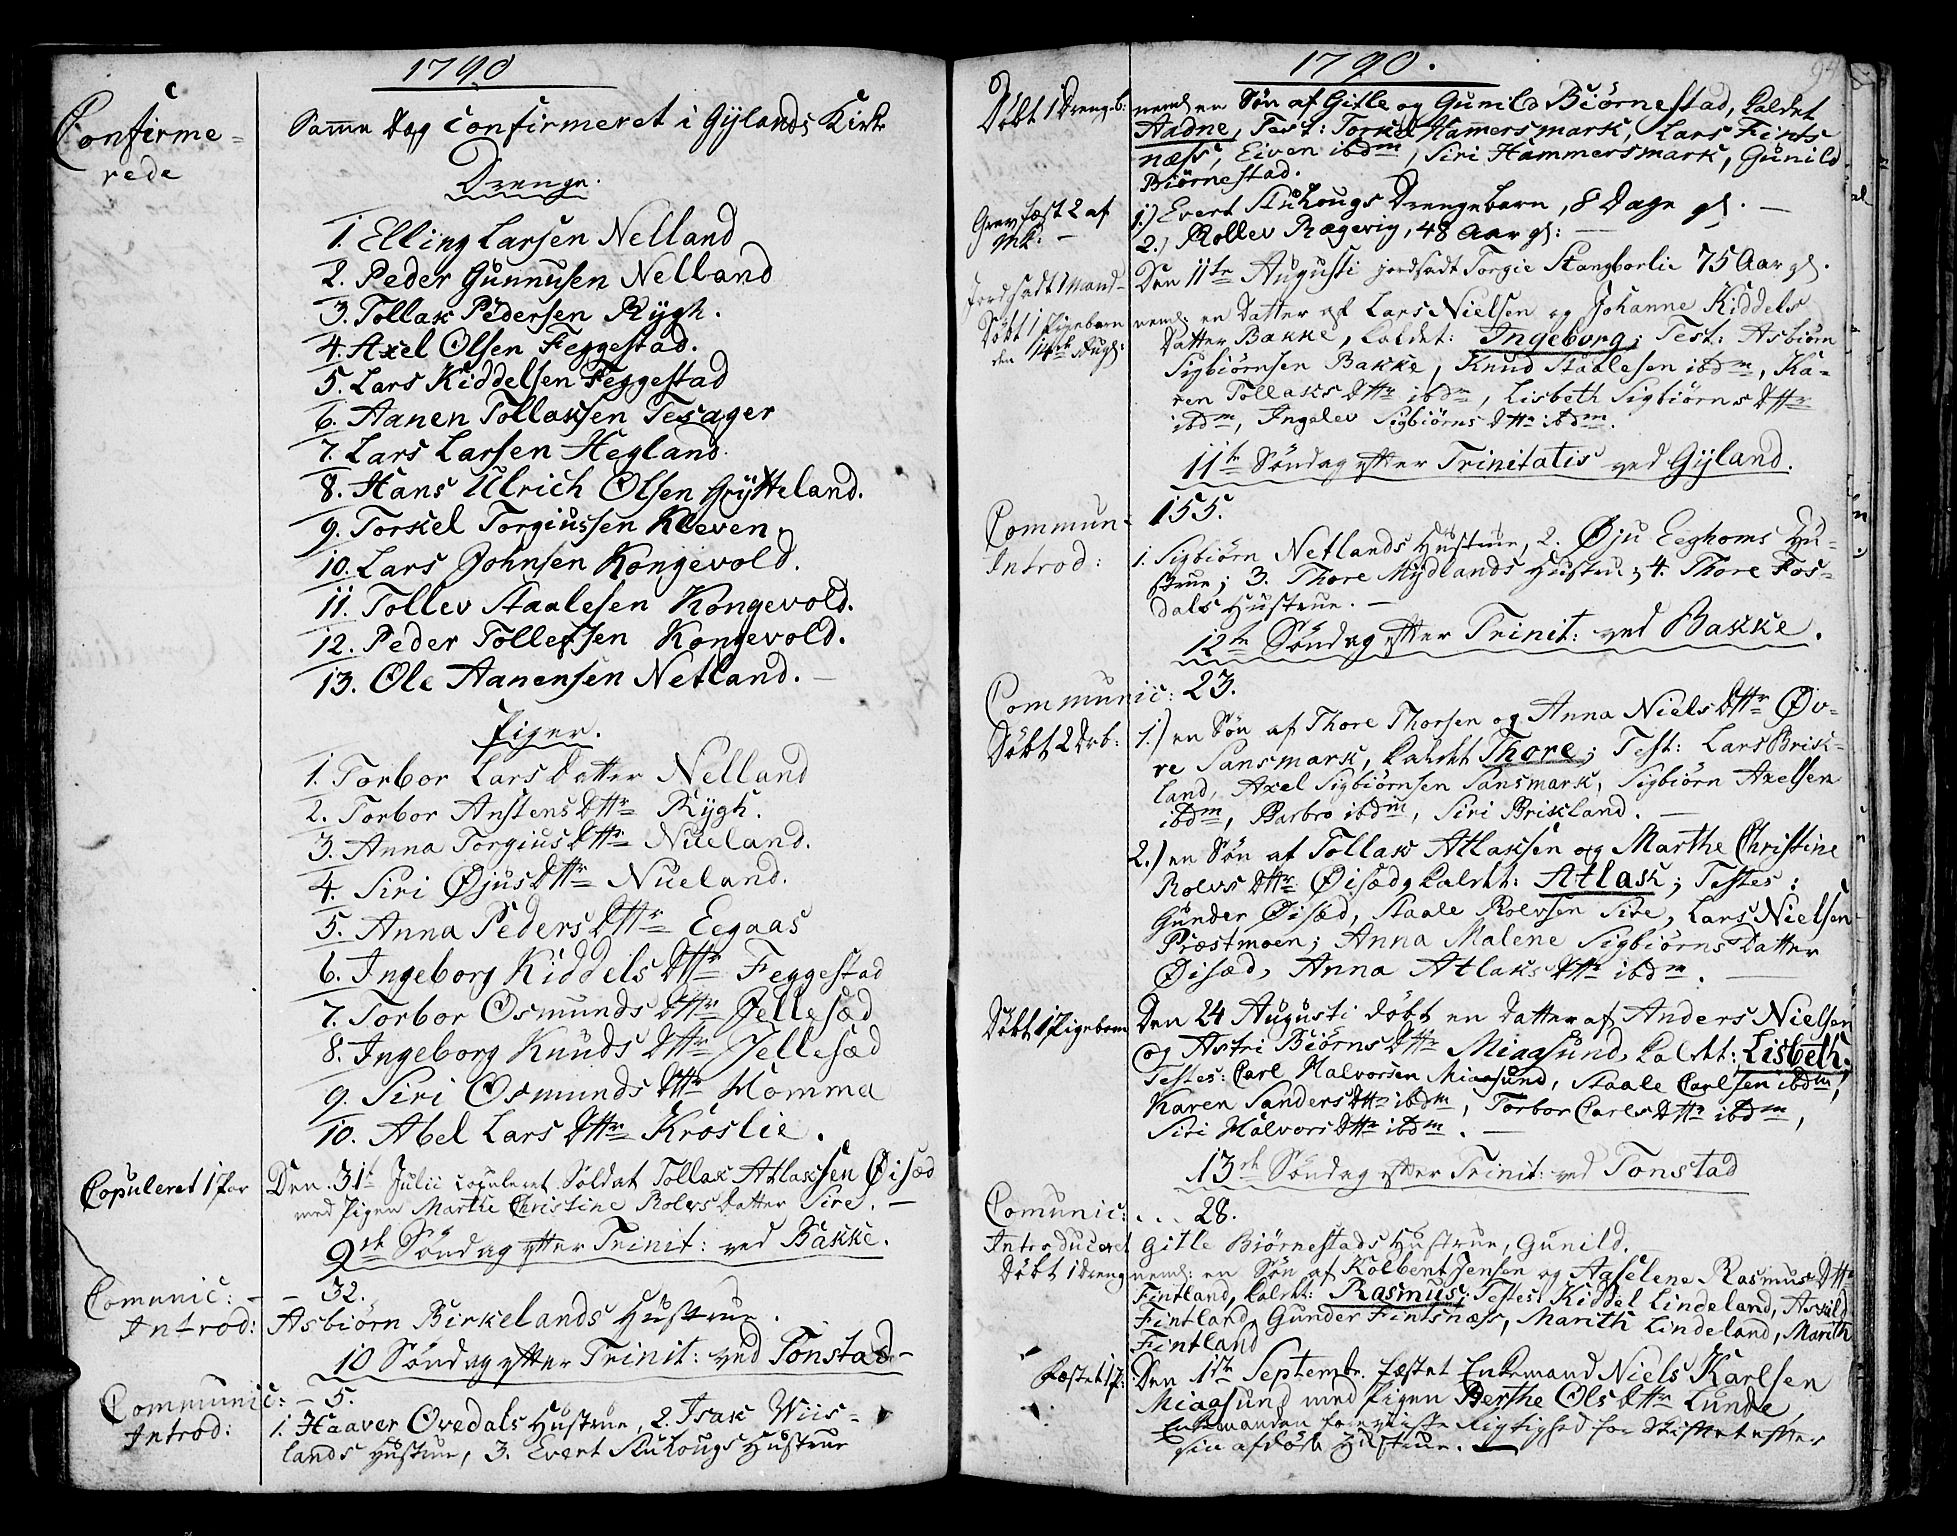 1790
Confirme-
rede
Samme Dag Confirmeret i Gylands Kirke
Drenge.
1. Elling Larsen Nelland
2. Peder Gunnusen Nelland
3. Tollak Pedersen Rygh.
4. Axel Olsen Feggestad.
5. Lars Kiddelsen Feggestad
6. Aanen Tollaksen Tesager
7. Lars Larsen Hegland.
8. Hans Ulrich Olsen Grytteland.
9. Torkel Torgiussen Kleven.
10. Lars Johnsen Kongevold.
11. Tollev Staalesen Kongevold.
12. Peder Tollefsen Kongevold.
13. Ole Aanensen Netland. —
Piger.
1. Torbor Lars Datter Nelland
2. Torbor Anstens Dttr Rygh.
3. Anna Torgius Dttr Nueland.
4. Siri Øjus Dttr Nueland.
5. Anna Peders Dttr Eegaas
6. Ingeborg Kiddels Dttr Feggestad
7. Torbor Osmunds Dttr Jellesæd
8. Ingeborg Knuds Dttr Jellesæd
9. Siri Osmunds Dttr Homma
10. Abel Lars Dttr Kroslie.
Copuleret 1 Par
Den 31t Julii copuleret Soldat Tollak Atlaksen Øisæd
med Pigen Marthe Christine Rolvs Datter Sire. —
9de Søndag efter Trinit: ved Bakke.
Comunic: — — 32.
Introd: Asbiørn Birkelands Hustrue.
10 Søndag efter Trinit: ved Tonstad —
Communic: — 5.
Introd: 1. Haaver Ovedals Hustrue, 2. Isak Wiis-
lands Hustrue, 3. Evert Stuhougs Hustrue
1790.
94
Døbt 1 Drengeb: neml en Søn af Gitle og Gunild Biørnestad, kaldet
Aadne, Test: Torkel Hamersmark, Lars Fints
næss, Eiven ibdm, Siri Hammersmark, Gunild
Biørnestad.
Grevfæst 2 af
Mk: —
1.) Evert Stuhougs Drengebarn, 8 Dage gl. —
2.) Rollev Rægevig, 48 Aar gl: —
Jordsadt 1 Mand — Den 11te Augusti jordsadt Torgie Stangborlie 75 Aar gl.
Døbt 1 Pigebarn
den 14de Aug:
neml: en Datter af Lars Nielsen og Johanne Kiddels
Datter Bakke, kaldet: Ingeborg; Test: Asbiørn
Sigbiørnsen Bakke, Knud Staalesen ibdm, Ka-
ren Tollaks Dttr ibdm, Lisbeth Sigbiørns Dttr
ibdm, Ingelev Sigbiørns Dttr ibdm.
11te Søndag efter Trinitatis ved Gyland.
Commun: 155.
Introd: 1. Sigbiørn Netlands Hustrue, 2. Øju Eeghoms Hu-
strue; 3. Thore Mydlands Hustrue; 4. Thore Fos-
dals Hustrue. —
12te Søndag efter Trinit: ved Bakke.
Communic: 23.
Døbt 2 Drb: 1.) en Søn af Thore Thorsen og Anna Niels Dttr Øv-
re Sansmark, kaldet Thore; Test: Lars Brisk-
land, Axel Sigbiørnsen Sansmark, Sigbiørn Axelsen
ibdm, Barbro ibdm, Siri Briskland. —
2.) en Søn af Tollak Atlaksen og Marthe Christine
Rolvs Dttr Øisæd, kaldet: Atlak; Testes:
Gunder Øisæd, Staale Rolvsen Sire, Lars Nielsen
Præstmoen; Anna Malene Sigbiørns Datter
Øisæd, Anna Atlaks Dttr ibdm. —
Døbt 1 Pigebarn Den 24 Augusti døbt en Datter af Anders Nielsen
og Astri Biørns Dttr Miaasund, kaldet: Lisbeth.
Testes: Carl Halvorsen Miaasund, Staale Carlsen ibdm,
Karen Sanders Dttr ibdm, Torbor Carls Dttr ibdm,
Siri Halvors Dttr ibdm. —
13de Søndag efter Trinit: ved Tonstad
Comunic: . . . 28.
Introduceret Gitle Biørnestads Hustrue, Gunild. —
Døbt 1 Dreng neml: en Søn af Kolbent Jensen og Aaselene Rasmus Dttr
Fintland, kaldet: Rasmus; Testes: Kiddel Lindeland, Askild
Fintland, Gunder Fintsnæss, Marith Lindeland, Marith
Fintland
Fæstet 1 P: Den 1te Septembr. fæstet Enkemand Niels Karlsen
Miaasund med Pigen Berthe Ols Dttr Lunde,
Enkemanden foreviiste Rigtighed for Skiftet efter
sin afdøde Hustrue. —